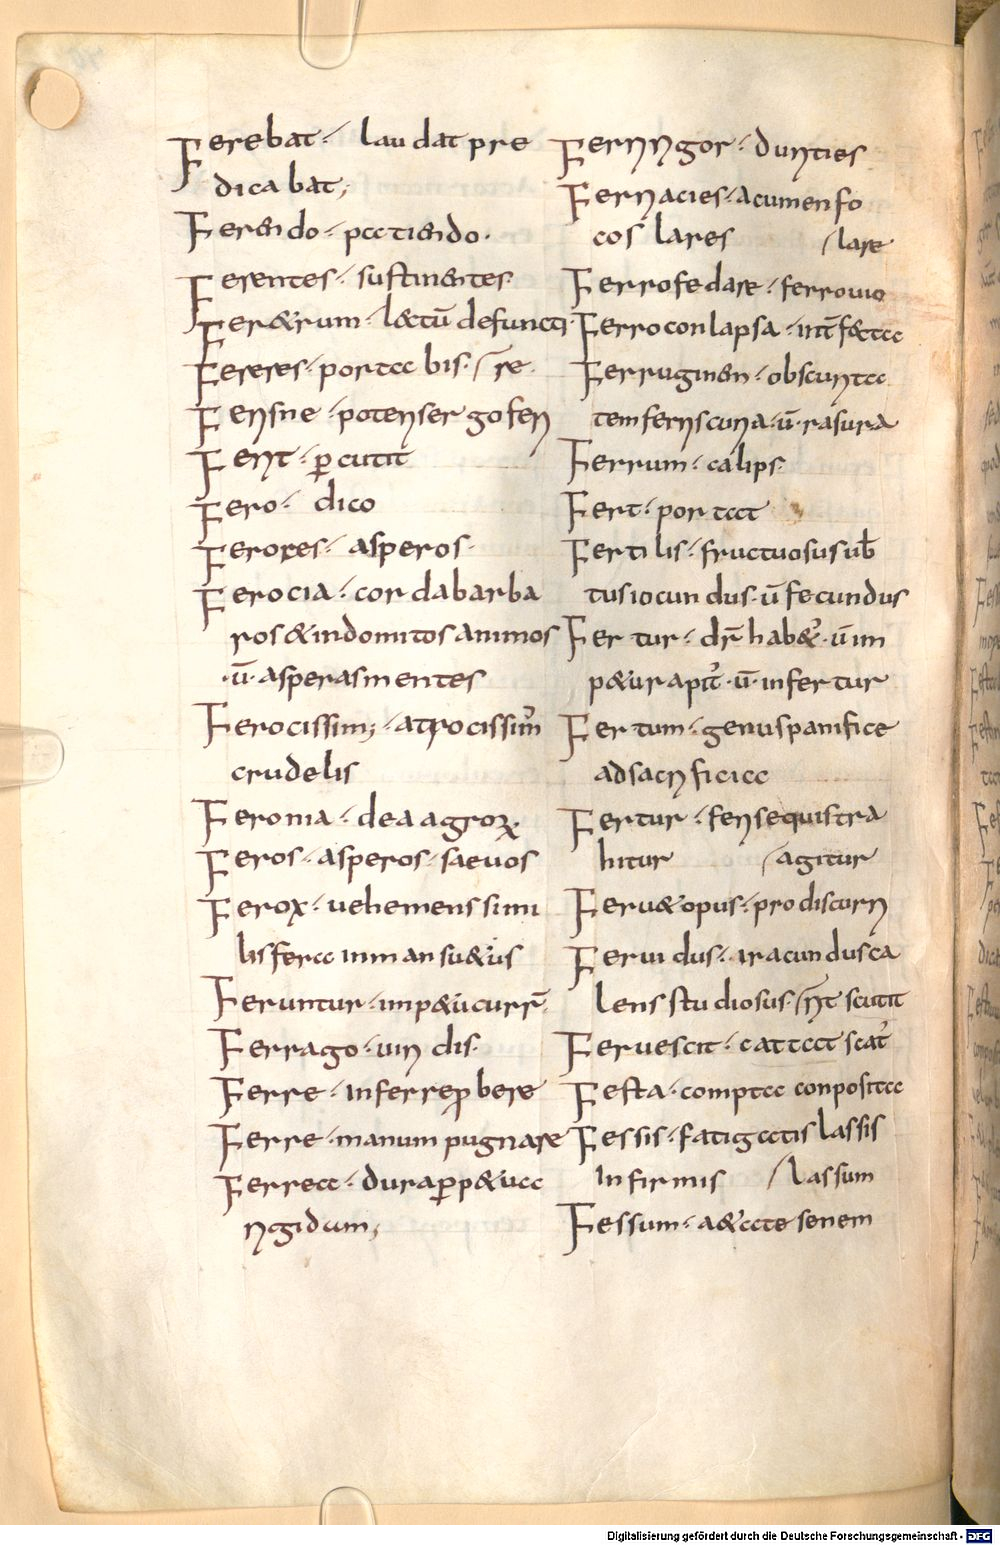 Ferebat · laudat pre
dicabat;
Ferendo · patiendo ·
Ferentes · sustinentes ·
Fer&rum · l&tū defuncti ·
Fereres · portabis · re ·
Fer sne · poteris ergo fer
Ferit · ꝑcutit
Fero · dico
Feroces · asperos ·
Ferocia · corda barba
ros & indomitos animos
· ū · asperas mentes
Ferocissim; · atrocissim᾽
crudelis
Feronia · dea agroꝝ ·
Feros · asperos · saeuos
Ferox · uehemens simi
lis ferae inmansu&us
Feruntur · imp&u curr̄ ·
Ferrago · uiri dis ·
Ferre · inferre ꝓbere
Ferre · manum pugnare
Ferrea · dura ꝑp&ua
rigidum;
Ferri rigor · durities
Feri acies · acumen fo
cos lares / lare
Ferro fedare · ferro uio
Ferro conlapsa · int̄fecta
Ferruginen · obscurita
tem ferri scuria · ū · rasura
Ferrum · calips ·
Fert · portat
Fertilis · fructuosus ub̄
tus iocundus · ū fecundus
Fertur · dr̄ hab&᾽ · ū im
p&u rapit᾽ · ū · infertur
Fertum · genus panifice
ad sacrificia
Fertur · fensequis tra
hitur / agitur
Feru& opus · pro discurri
Feruidus · iracundus ca
lens studiosus · scutit
Feruescit · eat scat᾽
Festa · compta conposita
Fessis · fatigatis lassis
infirmis / lassum
Fessum · a&ate senem
Digitalisierung gefördert durch die Deutsche Forschungsgemeinschaft - DFG